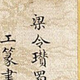 梁令瓚
工篆書